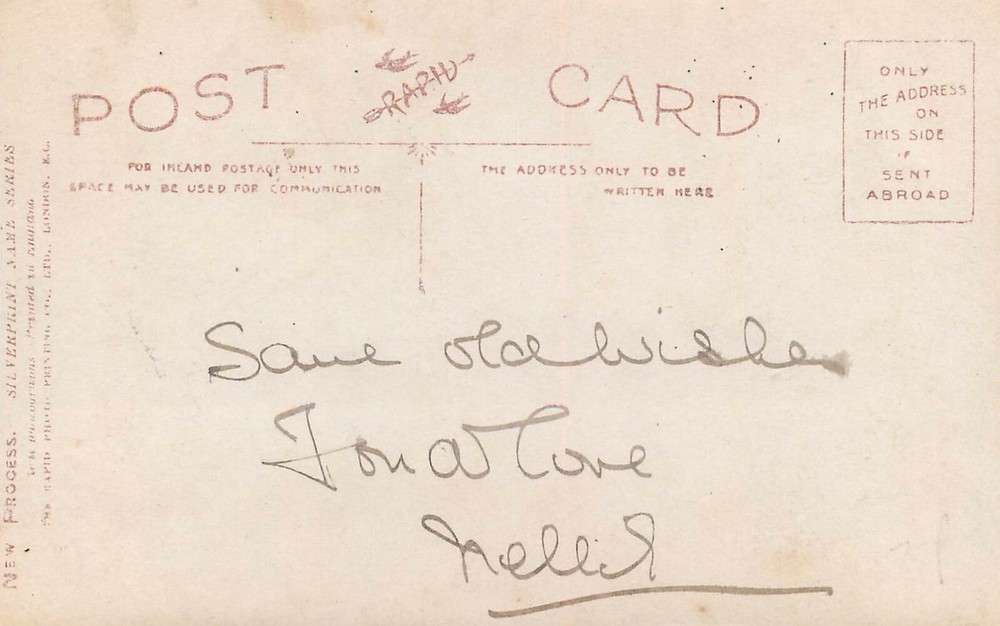 POST RAPID CARD
FOR INLAND POSTAGE ONLY THIS
SPACE MAY BE USED FOR COMMUNICATION
THE ADDRESS ONLY TO BE
WRITTEN HERE
ONLY
THE ADDRESS
ON
THIS SIDE
IF
SENT
ABROAD
NEW PROCESS. SILVERPRINT NAME SERIES
Printed in
THE RAPID PHOTO PRINTING CO., LTD., LONDON, E.C.
Same old wishes
Fond Love
Nellie